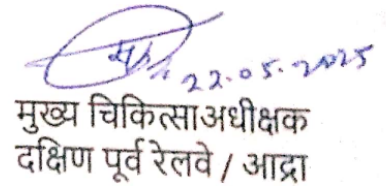 22.05.2025
मुख्य चिकित्साअधीक्षक
दक्षिण पूर्व रेलवे / आद्रा